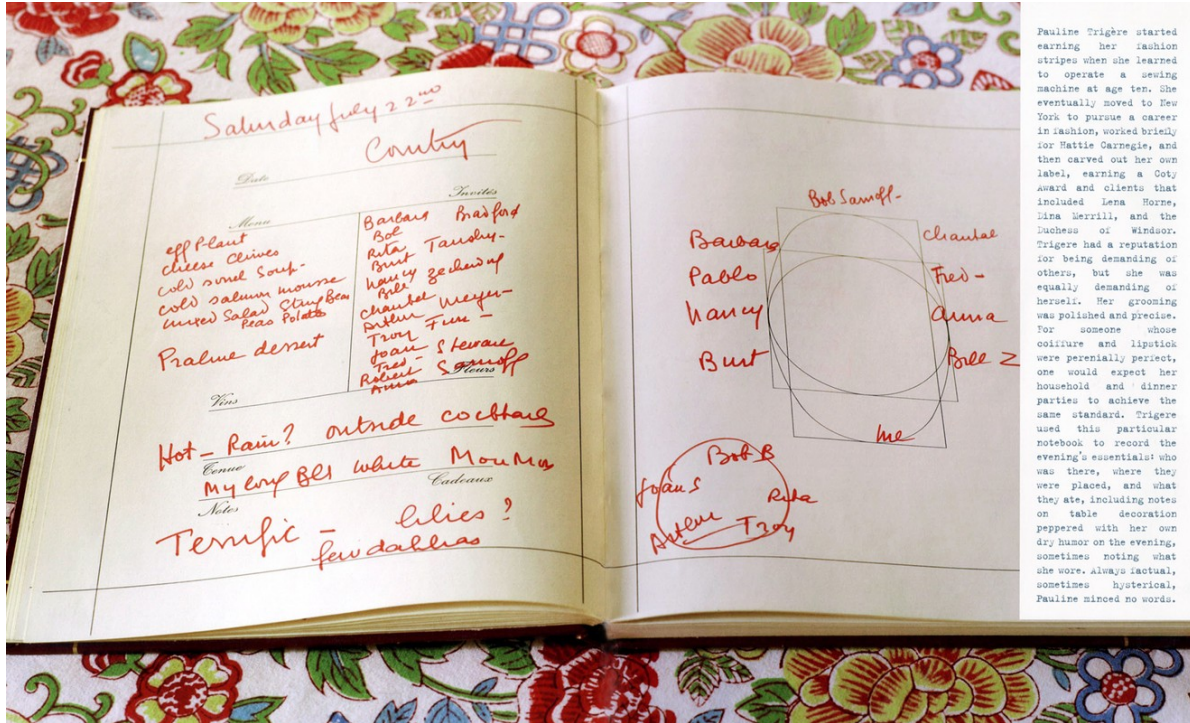 Saturday July 22nd
Country
Date
Invités
Menu
eggplant
cheese chives
cold sorrel soup-
cold salmon mousse
mixed Salad String Bean
Peas Potato
Praline dessert
Barbara Bradford
Bob
Rita
Burt Tansky-
Nancy
Bill
Chantal
Arthur Meyer-
Troy
Joan Stewart
Fred-
Robert Sarnoff
Anna
Fleurs
Vins
Hot - Rain? outside cocktails
Tenue
My long white
Cadeaux
Notes
Terrific - lilies?
few dahlias
Bob Sarnoff-
Barbara
Chantal
Pablo
Fred-
Nancy
Anna
Burt
Bill Z
me
Bob B
Joan S
Rita
Arthur
Troy
Pauline Trigère started
earning her fashion
stripes when she learned
to operate a sewing
machine at age ten. She
eventually moved to New
York to pursue a career
in fashion, worked briefly
for Hattie Carnegie, and
then carved out her own
label, earning a Coty
Award and clients that
included Lena Horne,
Dina Merrill, and the
Duchess of Windsor.
Trigere had a reputation
for being demanding of
others, but she was
equally demanding of
herself. Her grooming
was polished and precise.
For someone whose
coiffure and lipstick
were perenially perfect,
one would expect her
household and dinner
parties to achieve the
same standard. Trigere
used this particular
notebook to record the
evening's essentials: who
was there, where they
were placed, and what
they ate, including notes
on table decoration
peppered with her own
dry humor on the evening,
sometimes noting what
she wore. Always factual,
sometimes hysterical,
Pauline minced no words.